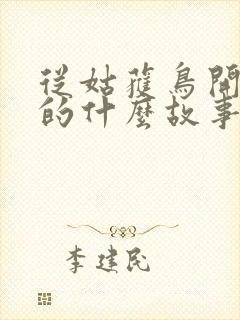 從姑獲鳥開
的什麼故事
李建民